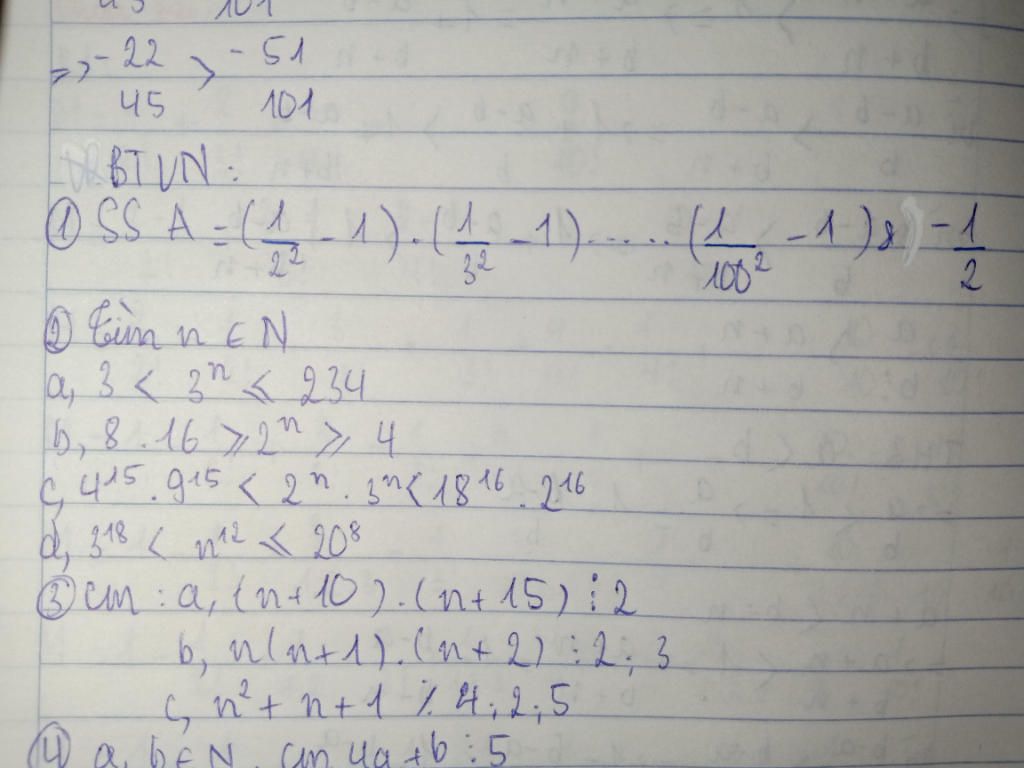 45 101
=> -22/45 > -51/101
BTVN:
① SS A = (1/2² - 1) . (1/3² - 1) ..... (1/100² - 1) & -1/2
② Tìm n ∈ N
a, 3 < 3ⁿ ≤ 234
b, 8 . 16 ≥ 2ⁿ ≥ 4
c, 4¹⁵ . 9¹⁵ < 2ⁿ . 3ⁿ < 18¹⁶ . 2¹⁶
d, 3¹⁸ < n¹² ≤ 20⁸
③ cm : a, (n+10) . (n+15) ⋮ 2
b, n(n+1) . (n+2) ⋮ 2 ; 3
c, n² + n + 1 ⋮̸ 4 ; 2 ; 5
④ a, b ∈ N. cm 4a + b ⋮ 5